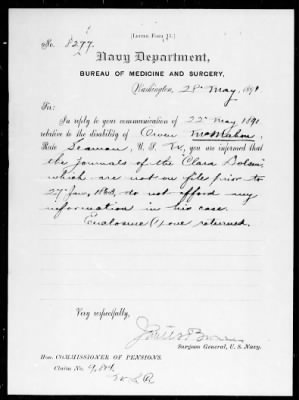 (Letter Form 11.)
No. 8277.
Navy Department,
BUREAU OF MEDICINE AND SURGERY,
Washington, 28 May, 1891
Sir:
In reply to your communication of 22nd May 1891
relative to the disability of Owen McMahon,
Rate Seaman, U. S. N., you are informed that
the journals of the "Clara Dolsen",
which are not on file prior to
27 Jan, 1863, do not afford any
information in his case.
Enclosure (1) one returned.
Very respectfully,
Surgeon General, U. S. Navy.
Hon. COMMISSIONER OF PENSIONS.
Claim No.